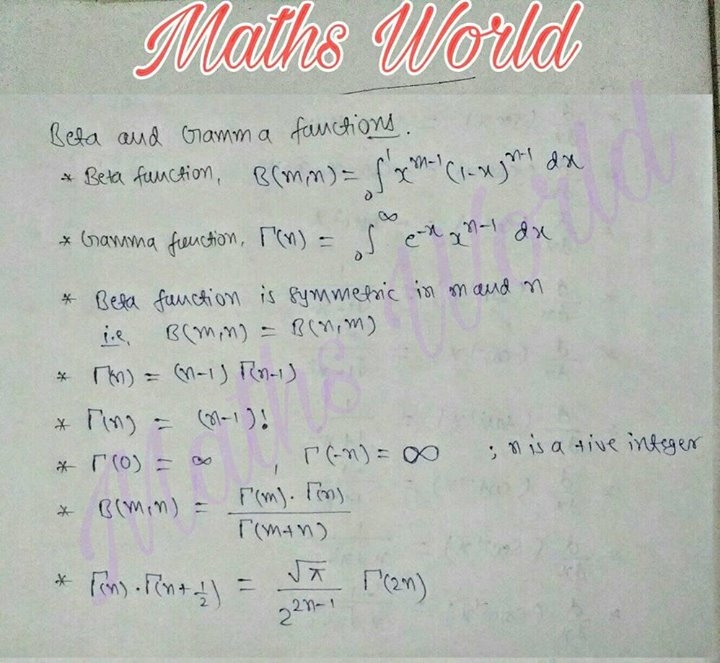 Maths World
Beta and Gamma functions.
* Beta function, B(m,n) = ₀∫¹ x^{m-1} (1-x)^{n-1} dx
* Gamma function, Γ(n) = ₀∫^∞ e^{-x} x^{n-1} dx
* Beta function is symmetric in m and n
i.e, B(m,n) = B(n,m)
* Γ(n) = (n-1) Γ(n-1)
* Γ(n) = (n-1)!
* Γ(0) = ∞ , Γ(-n) = ∞ ; n is a +ive integer
* B(m,n) = Γ(m) · Γ(n) / Γ(m+n)
* Γ(n) · Γ(n+1/2) = √π / 2^{2n-1} Γ(2n)
Maths World